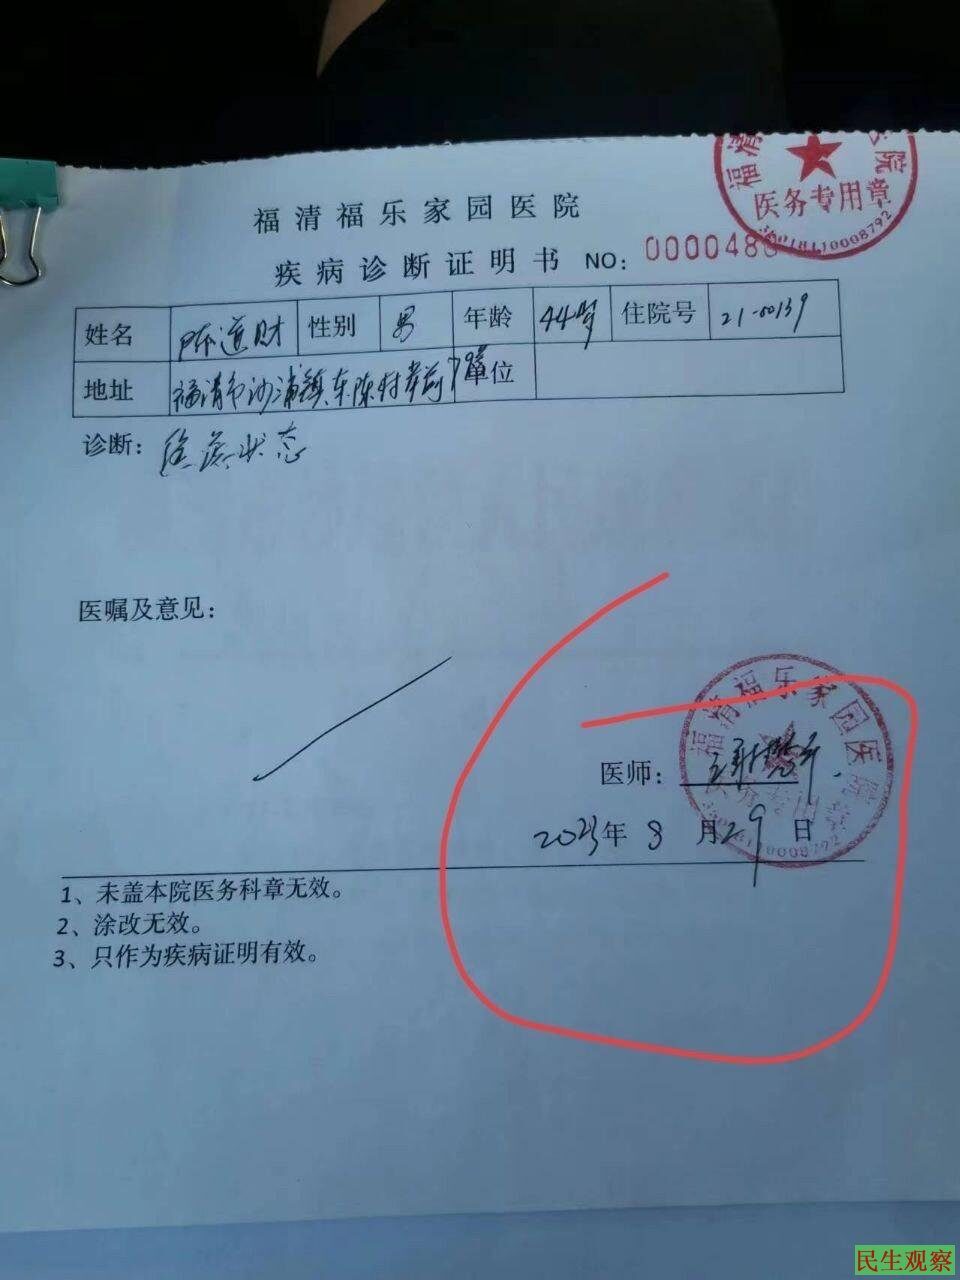 福清 院
医务专用章
35018110008792
福清福乐家园医院
疾病诊断证明书 NO: 000048
姓名 陈道财 性别 男 年龄 44岁 住院号 21-00139
地址 福清市沙浦镇东陈村 单位
诊断: 状态
医嘱及意见:
福清福乐家园医院
医师:
2023年8月29日
35018110008792
1、未盖本院医务科章无效。
2、涂改无效。
3、只作为疾病证明有效。
民生观察